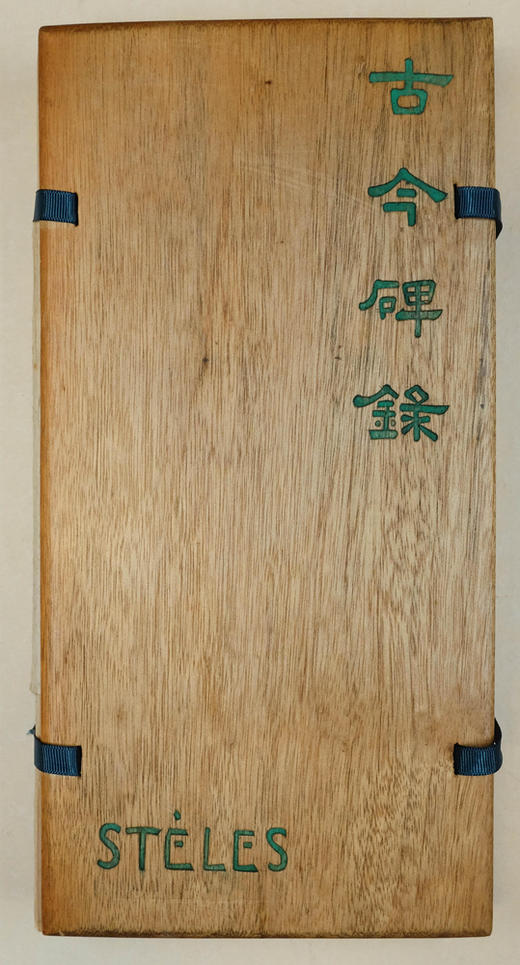 古今碑錄
STÈLES